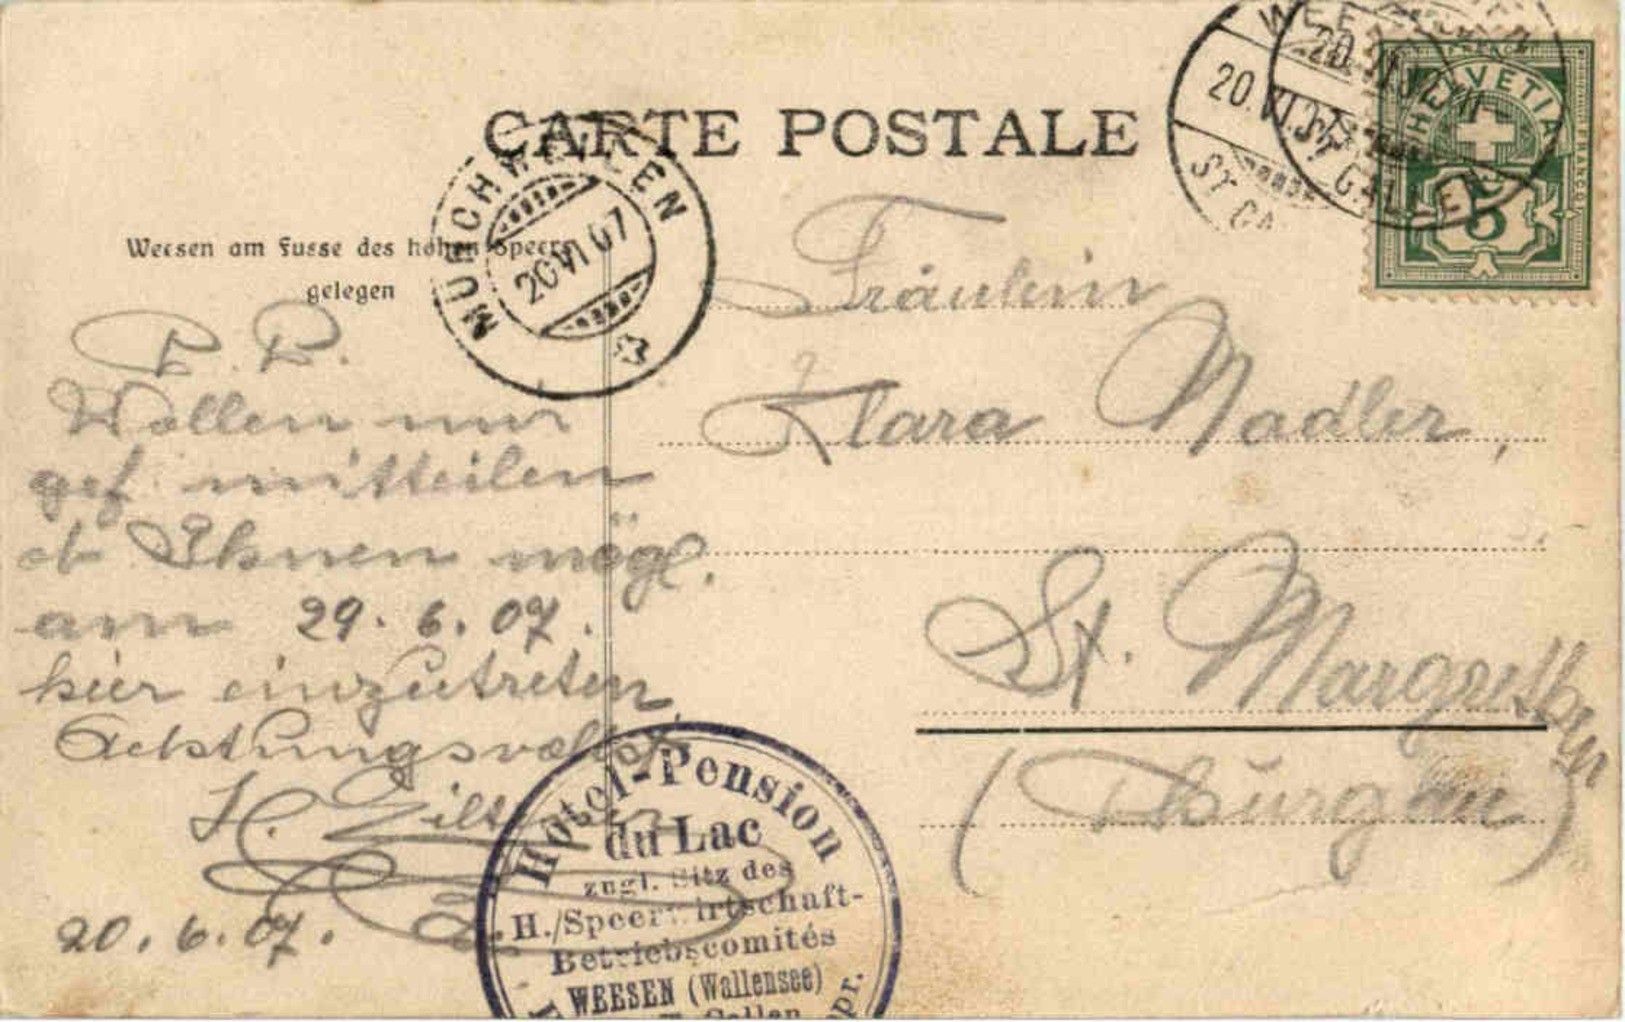 CARTE POSTALE
Weesen am Fusse des hohen Speers
gelegen
P. P.
Wollen nur
gef mitteilen
ob Ihnen mögl.
am 29. 6. 07.
hier einzutreten
Achtungsvollst
H.
20. 6. 07.
Fräulein
Klara Nadler,
St. Margrethen
(Thurgau)
MÜNCHWEILEN
20 VI 07
WEESEN
20. VI. 07
ST. GALLEN
HELVETIA
5
FRANCO
Hotel-Pension
du Lac
zugl. Sitz des
H./Speerwirtschaft-
Betriebscomités
WEESEN (Wallensee)